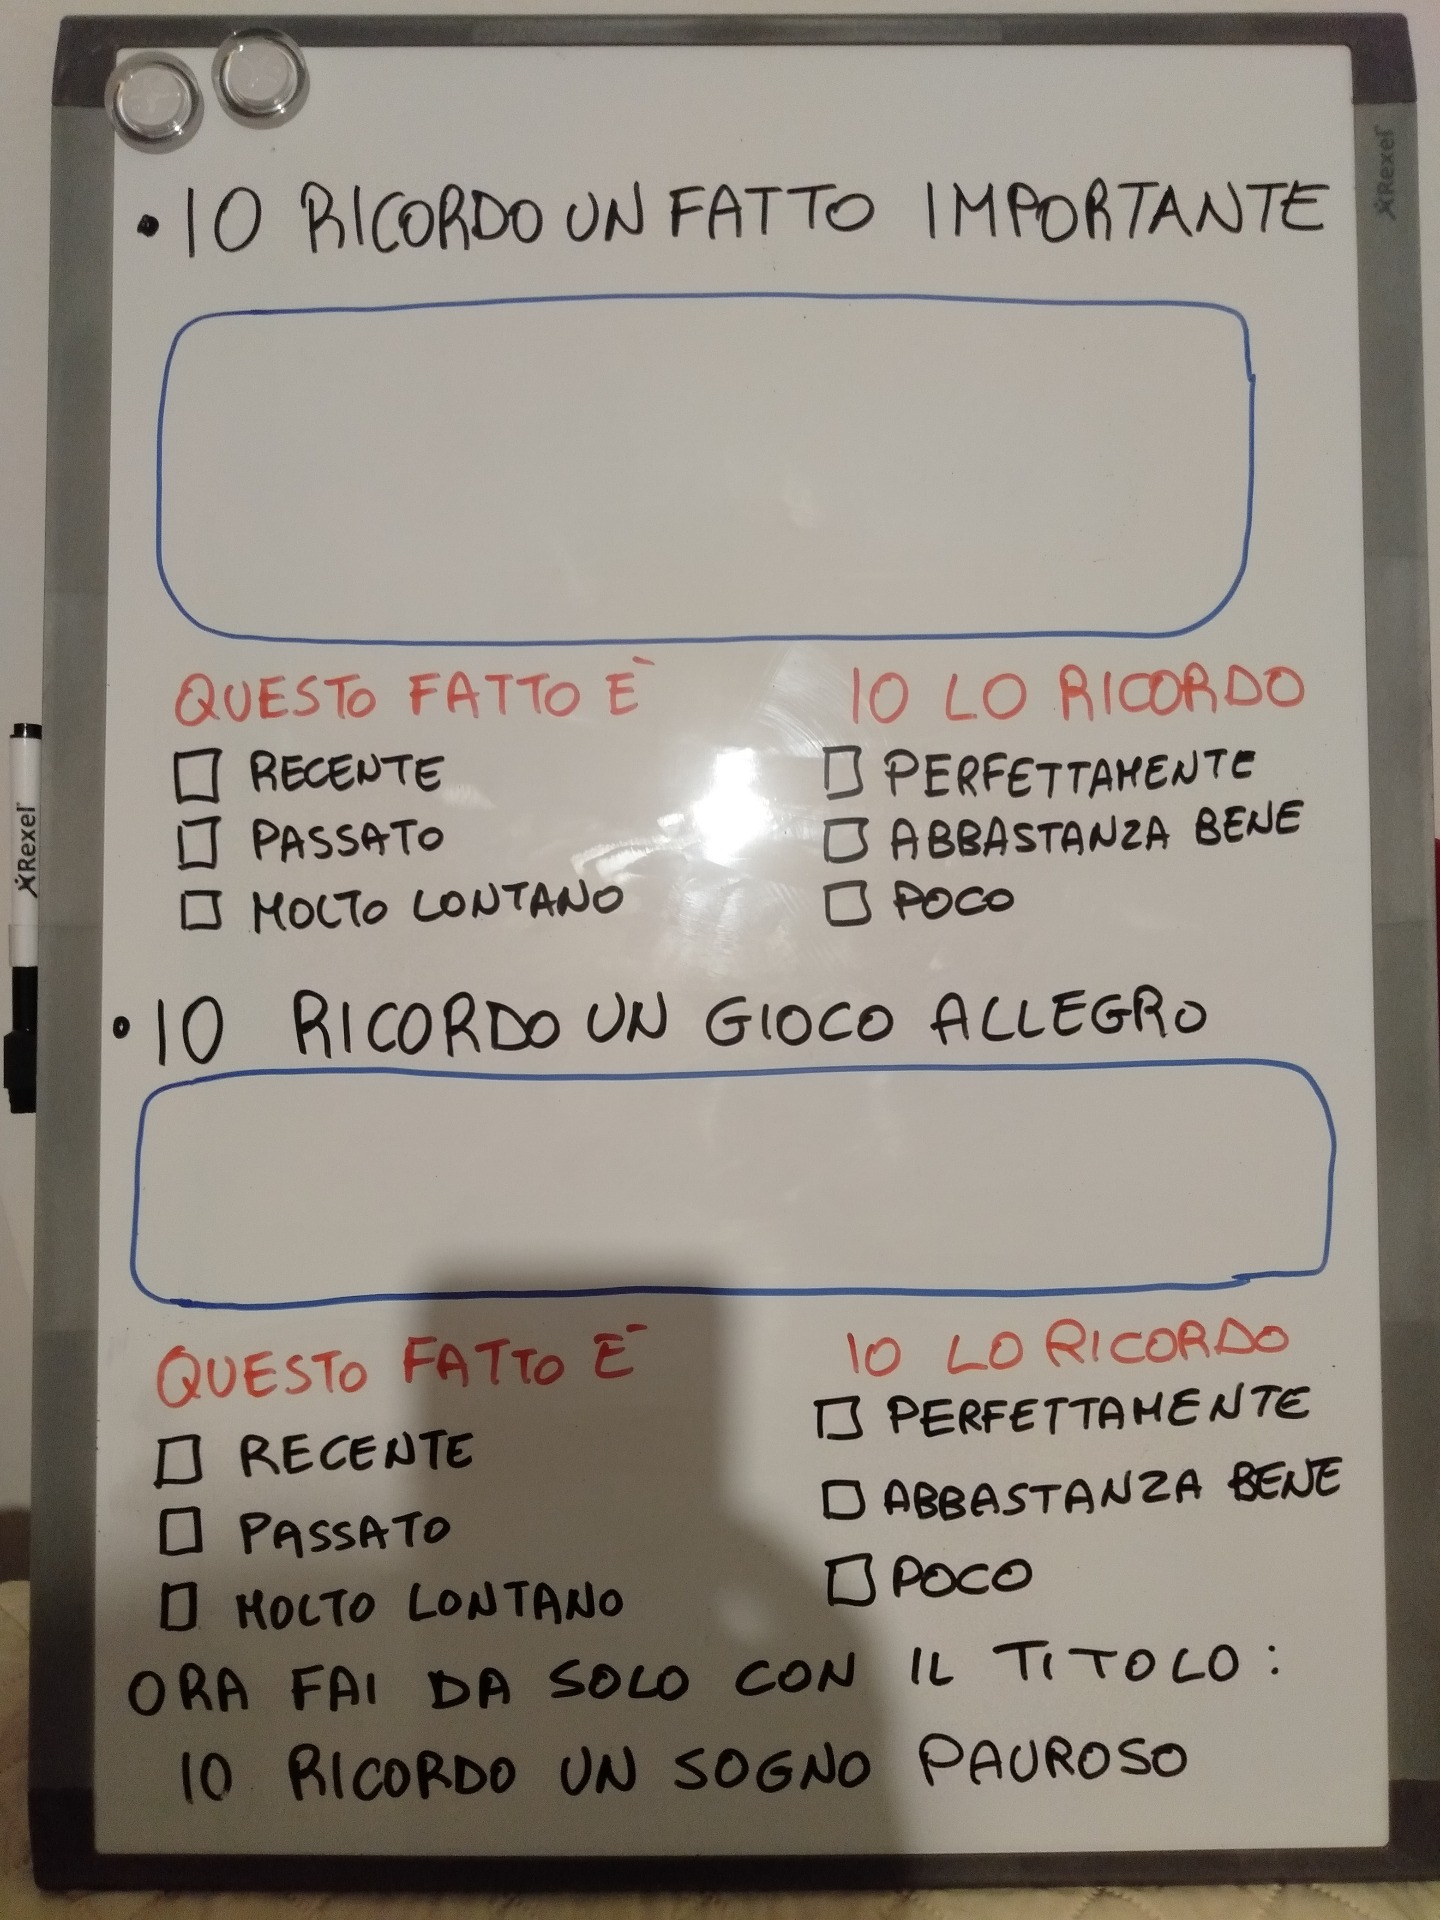 • IO RICORDO UN FATTO IMPORTANTE
QUESTO FATTO È
☐ RECENTE
☐ PASSATO
☐ MOLTO LONTANO
IO LO RICORDO
☐ PERFETTAMENTE
☐ ABBASTANZA BENE
☐ POCO
• IO RICORDO UN GIOCO ALLEGRO
QUESTO FATTO È
☐ RECENTE
☐ PASSATO
☐ MOLTO LONTANO
IO LO RICORDO
☐ PERFETTAMENTE
☐ ABBASTANZA BENE
☐ POCO
ORA FAI DA SOLO CON IL TITOLO:
IO RICORDO UN SOGNO PAUROSO
Rexel
Rexel